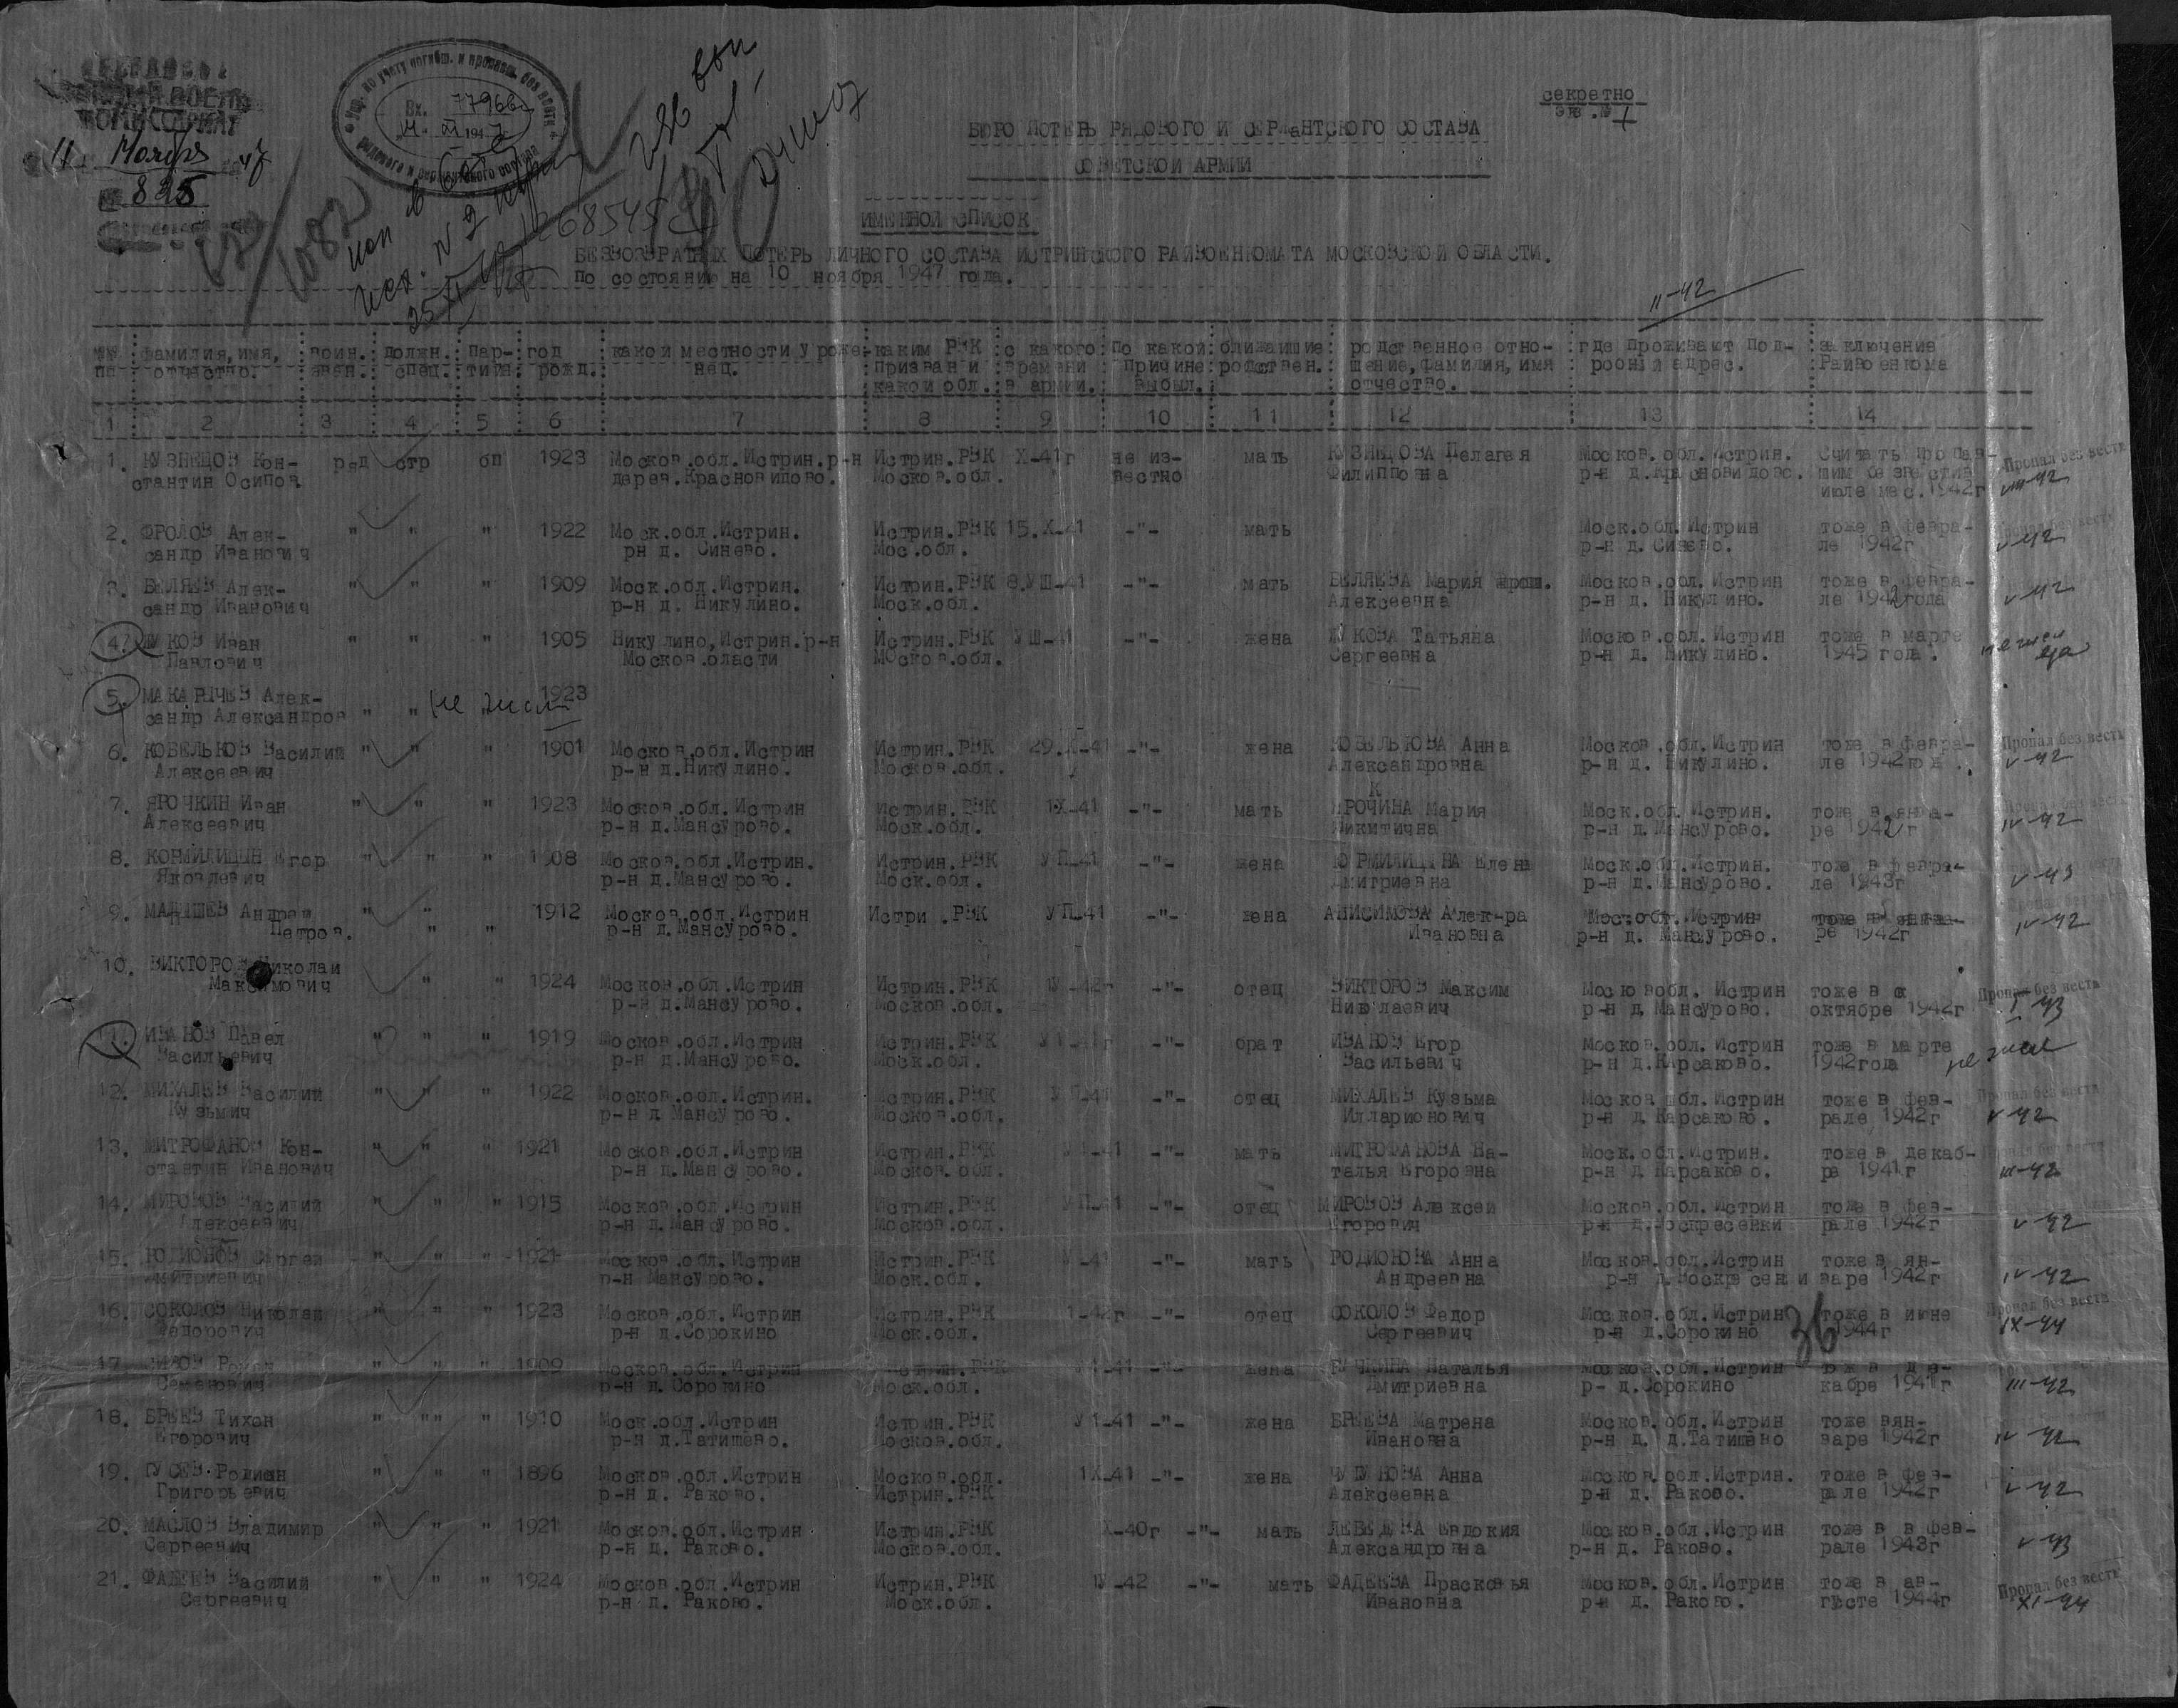 ВОЕНН
КОМИССАРИАТ
11 Ноября 47
№ 825
по учету погибш. и пропавш. без вести
Вх. 77966
рядового и сержантского состава
секретно
экз. №
БЮРО ПОТЕРЬ РЯДОВОГО И СЕРЖаНТСКОГО СОСТАВА
СОВЕТСКОЙ АРМИИ
ИМЕННОЙ СПИСОК
БЕЗВОЗВРАТНЫХ ПОТЕРЬ ЛИЧНОГО СОСТАВА ИСТРИНСКОГО РАЙВОЕНКОМАТА МОСКОВСКОЙ ОБЛАСТИ.
По состоянию на 10 ноября 1947 года.
II-42
№№ пп : фамилия, имя, отчество. : воин. зван. : должн. спец. : Пар-тийн. : год рожд. : какой местности уроже-нец. : каким РВК Призван и какой обл. : с какого времени в армии. : По какой Причине выбыл. : ближайшие родствен. : родственное отно-шение, фамилия, имя отчество. : где Проживают Под-робный адрес. : заключение Райвоенкома
1 2 3 4 5 6 7 8 9 10 11 12 13 14
1. КУЗНЕЦОВ Кон- ряд стр бп 1923 Москов.обл.Истрин.р-н Истрин.РВК X-41г не из- мать КУЗНЕЦОВА Пелагея Москов. обл. Истрин. Считать Пропав- Пропал без вести
стантин Осипов. дерев.Красновидово. Москов.обл. вестно Филипповна р-н д.Красновидово. шим безвести в
июле мес. 1942г VIII-42
2. ФРОЛОВ Алек- " " " 1922 Моск.обл.Истрин. Истрин.РВК 15.X-41 -"- мать Моск.обл.Истрин тоже в февра-
сандр Иванович рн д. Синево. Мос.обл. р-н д. Синево. ле 1942г V-42
3. БЕЛЯЕВ Алек- " " " 1909 Моск.обл.Истрин. Истрин.РВК 8.УШ-41 -"- мать БЕЛЯЕВА Мария Москов.обл. Истрин тоже в февра-
сандр Иванович р-н д. Никулино. Моск.обл. Алексеевна р-н д. Никулино. ле 1942года V-42
4. ЖУКОВ Иван " " " 1905 Никулино,Истрин.р-н Истрин.РВК УШ-41 -"- жена ЖУКОВА Татьяна Москов.обл. Истрин тоже в марте
Павлович Москов.оласти МОсков.обл. Сергеевна р-н д. Никулино. 1945 года.
5. МАКАРЫЧЕВ Алек- 1923
сандр Александров " " не
6. КОБЕЛЬКОВ Василий " " " 1901 Москов.обл.Истрин Истрин.РВК 29.X-41 -"- жена КОБЕЛЬКОВА Анна Москов.обл. Истрин тоже в февра- Пропал без вести
Алексеевич р-н д.Никулино. Москов.обл. Александровна р-н д. Никулино. ле 1942 V-42
7. ЯРОЧКИН Иван " " " 1923 Москов.обл.Истрин Истрин.РВК 1X-41 -"- мать К ЯРОЧИНА Мария Моск.обл.Истрин. тоже в янва-
Алексеевич р-н д.Мансурово. Моск.обл. Никитична р-н д.Мансурово. ре 1942г IV-42
8. КОРМИЛИЦЫН Егор " " " 1908 Москов.обл.Истрин. Истрин.РВК УП-41 -"- жена КОРМИЛИЦЫНА Елена Моск.обл.Истрин. тоже в февра-
Яковлевич р-н д.Мансурово. Моск.обл. Дмитриевна р-н д.Мансурово. ле 1943г V-43
9. МАЛЫШЕВ Андрей " " 1912 Москов.обл.Истрин Истри .РВК УП-41 -"- жена АНИСИМОВА Алек-ра Мос.обл.Истрин тоже в янва-
Петров. " " р-н д.Мансурово. Ивановна р-н д. Мансурово. ре 1942г IV-42
10. ВИКТОРОВ Николай
Максимович " " 1924 Москов.обл.Истрин Истрин.РВК 1У-42г -"- отец ВИКТОРОВ Максим Москвообл. Истрин тоже в Пропал без вести
р-н д.Мансурово. Москов.обл. Николаевич р-н д.Мансурово. октябре 1942г I-43
11. ИВАНОВ Павел " " " 1919 Москов.обл.Истрин Истрин.РВК -"- брат ИВАНОВ Егор Москов.обл. Истрин тоже в марте
Васильевич р-н д.Мансурово. Моск.обл. Васильевич р-н д.Карсаково. 1942года
12. МИХАЛЕВ Василий " " " 1922 Москов.обл.Истрин. Истрин.РВК -41 -"- отец МИХАЛЕВ Кузьма Москов обл. Истрин тоже в фев-
Кузьмич р-н д Мансурово. Москов.обл. Илларионович р-н д.Карсаково. рале 1942г V-42
13. МИТРОФАНОВ Кон- " " " 1921 Москов.обл.Истрин Истрин.РВК -41 -"- мать МИТРОФАНОВА На- Моск.обл.Истрин. тоже в декаб-
стантин Иванович р-н д.Мансурово. Москов.обл. талья Егоровна р-н д.Карсаково. ре 1941г III-42
14. МИРОНОВ Василий " " " 1915 Москов.обл.Истрин Истрин.РВК УП-41 -"- отец МИРОНОВ Алексей Москов.обл. Истрин тоже в фев-
Алексеевич р-н д.Мансурово. Москов.обл. Егорович р-н д.Воскресенки рале 1942г V-42
15. РОДИОНОВ Сергей " " " 1921 Москов.обл.Истрин Истрин.РВК -41 -"- мать РОДИОНОВА Анна Москов.обл.Истрин тоже в ян-
Дмитриевич р-н Мансурово. Моск.обл. Андреевна р-н д.Воскресенки варе 1942г IV-42
16. СОКОЛОВ Николай " " " 1923 Москов.обл.Истрин Истрин.РВК 1-42г -"- отец СОКОЛОВ Федор Москов.обл.Истрин тоже в июне Пропал без вести
Федорович р-н д.Сорокино Моск.обл. Сергеевич р-н д.Сорокино 36 1944г IX-44
17. Роман " " " 1909 Москов.обл.Истрин Истрин.РВК -41 -"- жена Наталья Москов.обл.Истрин тоже в де-
Семенович р-н д.Сорокино Моск.обл. Дмитриевна р- д.Сорокино кабре 1941г III-42
18. БРЕЕВ Тихон " "" " 1910 Моск.обл.Истрин Истрин.РВК У1-41 -"- жена БРЕЕВА Матрена Москов.обл.Истрин тоже вян-
Егорович р-н д.Татищево. Москов.обл. Ивановна р-н д. д.Татищево варе 1942г IV-42
19. ГУСЕВ Родион " " " 1896 Москов.обл.Истрин Москов.обл. 1X-41 -"- жена Анна Москов.обл.Истрин. тоже в фев-
Григорьевич р-н д. Раково. Истрин.РВК Алексеевна р-н д. Раково. рале 1942г V-42
20. МАСЛОВ Владимир " " " 1921 Москов.обл.Истрин Истрин.РВК X-40г -"- мать ЛЕБЕДЕВА Евдокия Москов.обл.Истрин тоже в в фев-
Сергеевич р-н д. Раково. Москов.обл. Александровна р-н д. Раково. рале 1943г V-43
21. ФАДЕЕВ Василий " " " 1924 Москов.обл.Истрин Истрин.РВК 1У-42 -"- мать ФАДЕЕВА Прасковья Москов.обл.Истрин тоже в ав- Пропал без вести
Сергеевич р-н д. Раково. Моск.обл. Ивановна р-н д. Раково. густе 1944г XI-44